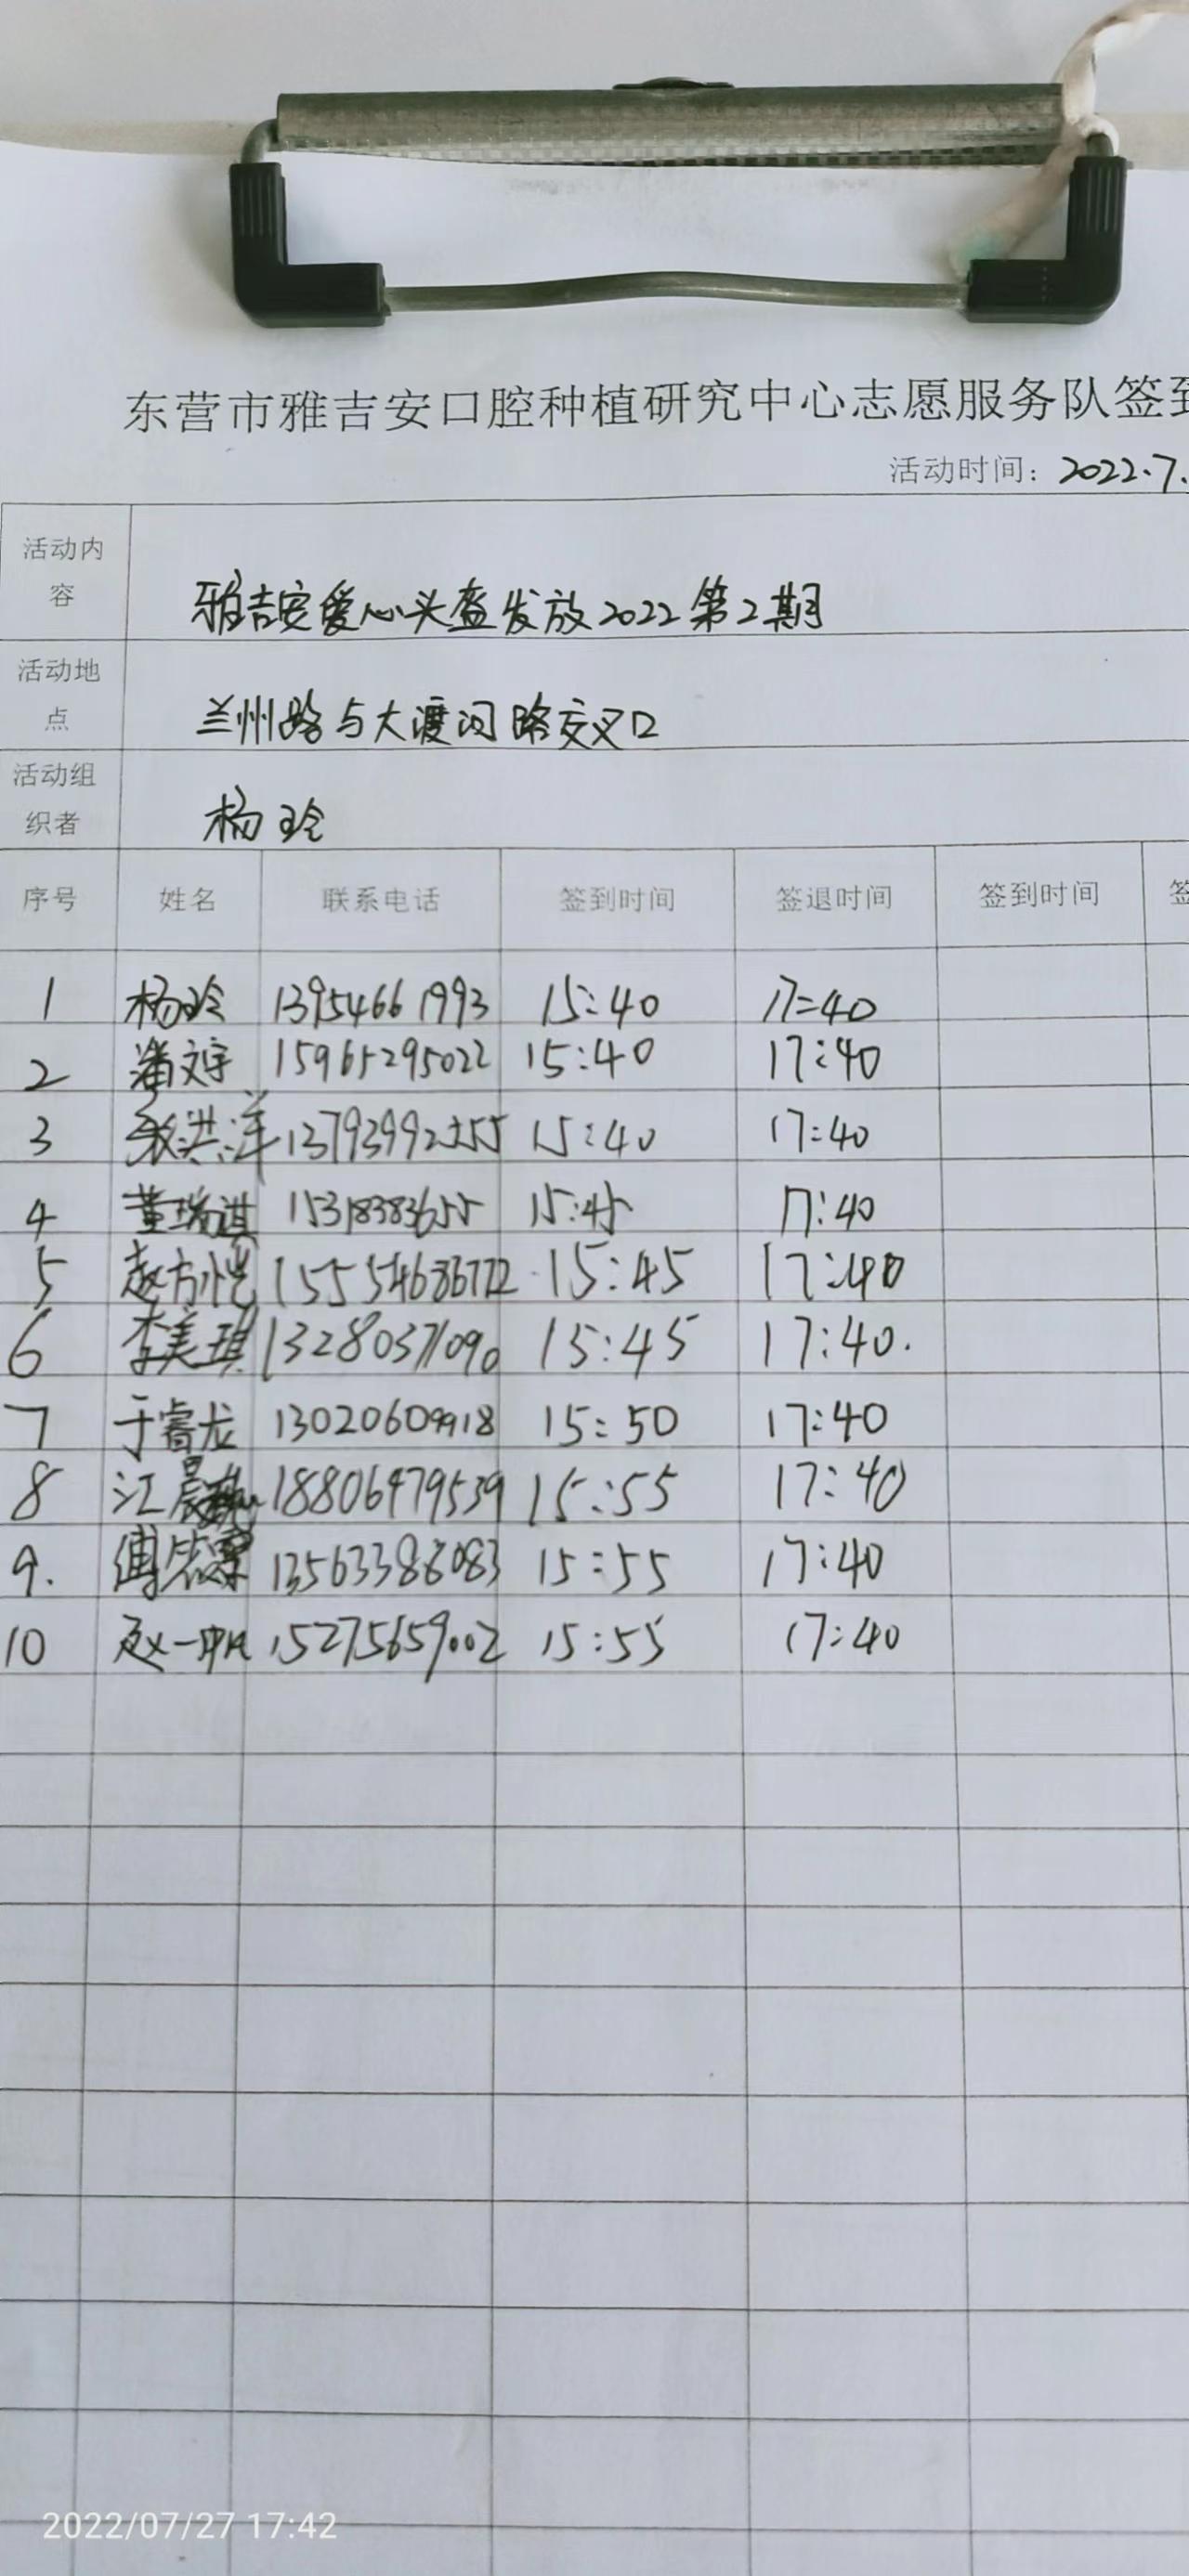 东营市雅吉安口腔种植研究中心志愿服务队签到
活动时间：2022.7.
活动内容 雅吉安爱心头盔发放2022第2期
活动地点 兰州路与大渡河路交叉口
活动组织者 杨玲
序号 姓名 联系电话 签到时间 签退时间 签到时间 签
1 杨玲 13954661993 15:40 17:40
2 潘文宇 15965295022 15:40 17:40
3 张洪洋 13793992555 15:40 17:40
4 董瑞琪 15318383655 15:45 17:40
5 赵方恺 15:45 17:40
6 李美琪 13280371090 15:45 17:40.
7 于睿龙 13020609918 15:50 17:40
8 江晨 18806479539 15:55 17:40
9. 傅 13563388083 15:55 17:40
10 赵一 15275659002 15:55 17:40
2022/07/27 17:42